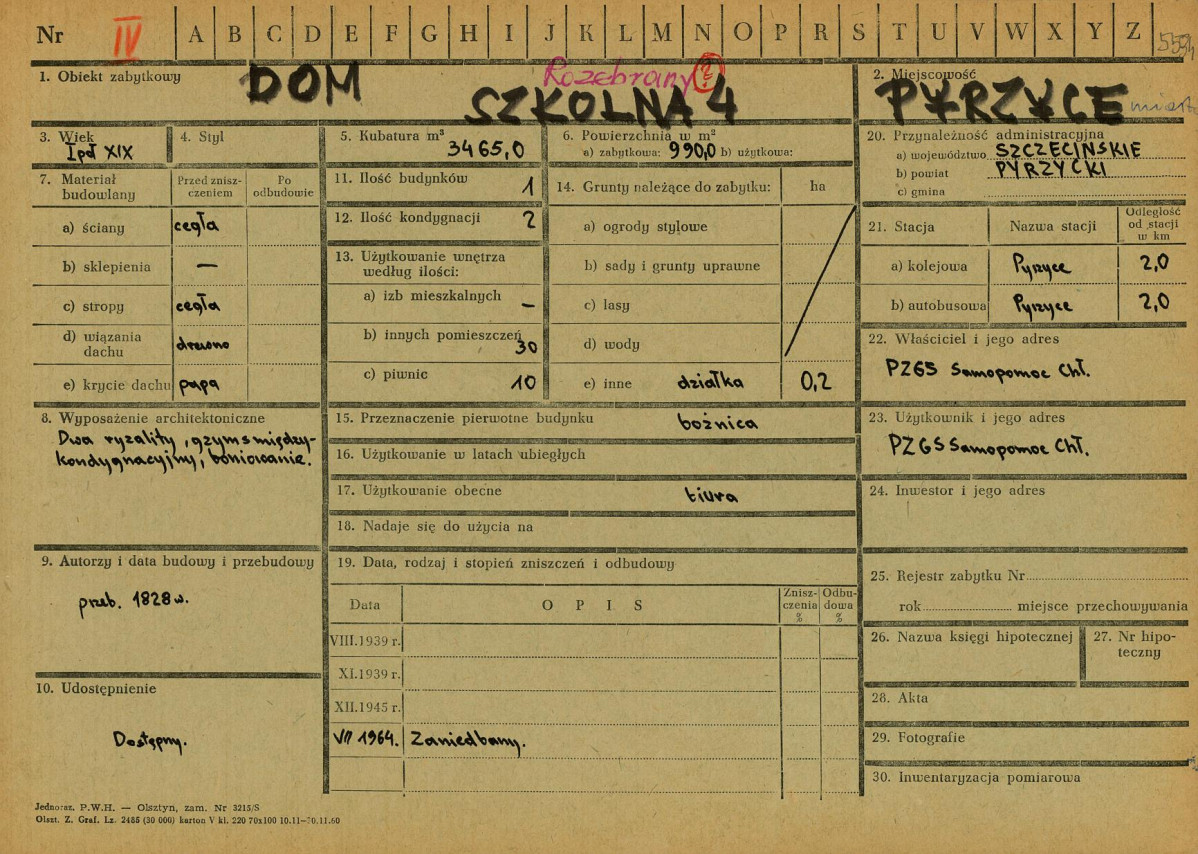 Nr IV A B C D E F G H I J K L M N O P R S T U V W X Y Z
1. Obiekt zabytkowy DOM SZKOLNA 4
Rozebrany
2. Miejscowość PYRZYCE miasto
3. Wiek I pł XIX
4. Styl
5. Kubatura m³ 3465,0
6. Powierzchnia w m²
a) zabytkowa: 990,0 b) użytkowa:
7. Materiał budowlany
Przed znisz-
czeniem
Po
odbudowie
a) ściany cegła
b) sklepienia —
c) stropy cegła
d) wiązania
dachu drewno
e) krycie dachu papa
8. Wyposażenie architektoniczne
Dwa ryzality, gzyms między-
kondygnacyjny, boniowanie.
9. Autorzy i data budowy i przebudowy
przeb. 1828 w.
10. Udostępnienie
Dostępny.
11. Ilość budynków 1
12. Ilość kondygnacji 2
13. Użytkowanie wnętrza
według ilości:
a) izb mieszkalnych —
b) innych pomieszczeń 30
c) piwnic 10
14. Grunty należące do zabytku: ha
a) ogrody stylowe
b) sady i grunty uprawne
c) lasy
d) wody
e) inne działka 0,2
15. Przeznaczenie pierwotne budynku bożnica
16. Użytkowanie w latach ubiegłych
17. Użytkowanie obecne biura
18. Nadaje się do użycia na
19. Data, rodzaj i stopień zniszczeń i odbudowy
Data O P I S
Znisz-
czenia
%
Odbu-
dowa
%
VIII.1939 r.
XI.1939 r.
XII.1945 r.
VII 1964. Zaniedbany.
20. Przynależność administracyjna
a) województwo SZCZECIŃSKIE
b) powiat PYRZYCKI
c) gmina
21. Stacja Nazwa stacji
Odległość
od stacji
w km
a) kolejowa Pyrzyce 2,0
b) autobusowa Pyrzyce 2,0
22. Właściciel i jego adres
PZGS Samopomoc Chł.
23. Użytkownik i jego adres
PZGS Samopomoc Chł.
24. Inwestor i jego adres
25. Rejestr zabytku Nr
rok miejsce przechowywania
26. Nazwa księgi hipotecznej
27. Nr hipo-
teczny
28. Akta
29. Fotografie
30. Inwentaryzacja pomiarowa
Jednoraz. P.W.H. — Olsztyn, zam. Nr 3215/S
Olszt. Z. Graf. Lz. 2465 (30 000) karton V kl. 220 70x100 10.11—10.11.60